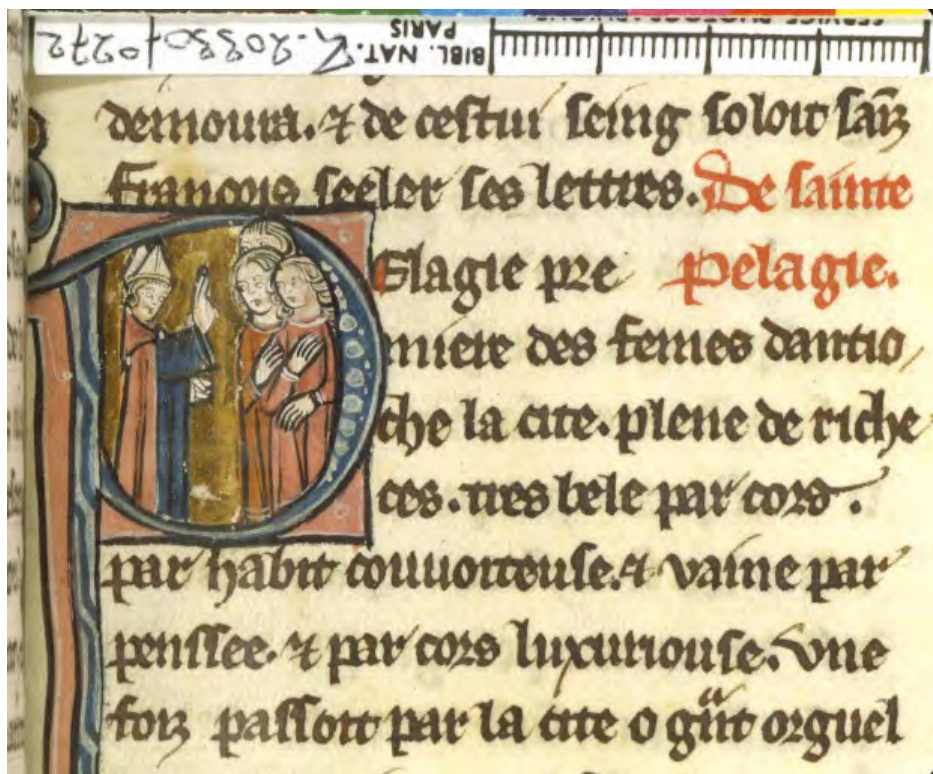 SERVICE PHOTOGRAPHIQUE
BIBL. NAT.
PARIS
demoura. ⁊ de cestui seing soloit sāīz
françois seeler ses lettres. De sainte
Elagie pre pelagie.
miere des femes dantio
che la cite. plene de riche
ces. tres bele par cors.
par habit couuoiteuse. ⁊ vaine par
penssee. ⁊ par cors luxuriouse. vne
foiz passoit par la cite o gͣnt orguel